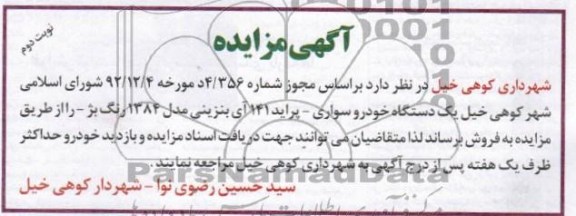 نوبت دوم
آگهی مزایده
شهرداری کوهی خیل در نظر دارد براساس مجوز شماره ۴/۳۵۶د مورخه ۹۲/۱۲/۴ شورای اسلامی
شهر کوهی خیل یک دستگاه خودرو سواری - پراید ۱۴۱ آی بنزینی مدل ۱۳۸۴ رنگ بژ - را از طریق
مزایده به فروش برساند لذا متقاضیان می توانند جهت دریافت اسناد مزایده و بازدید خودرو حداکثر
ظرف یک هفته پس از درج آگهی به شهرداری کوهی خیل مراجعه نمایند.
سید حسین رضوی نوا - شهردار کوهی خیل
ParsNamadData